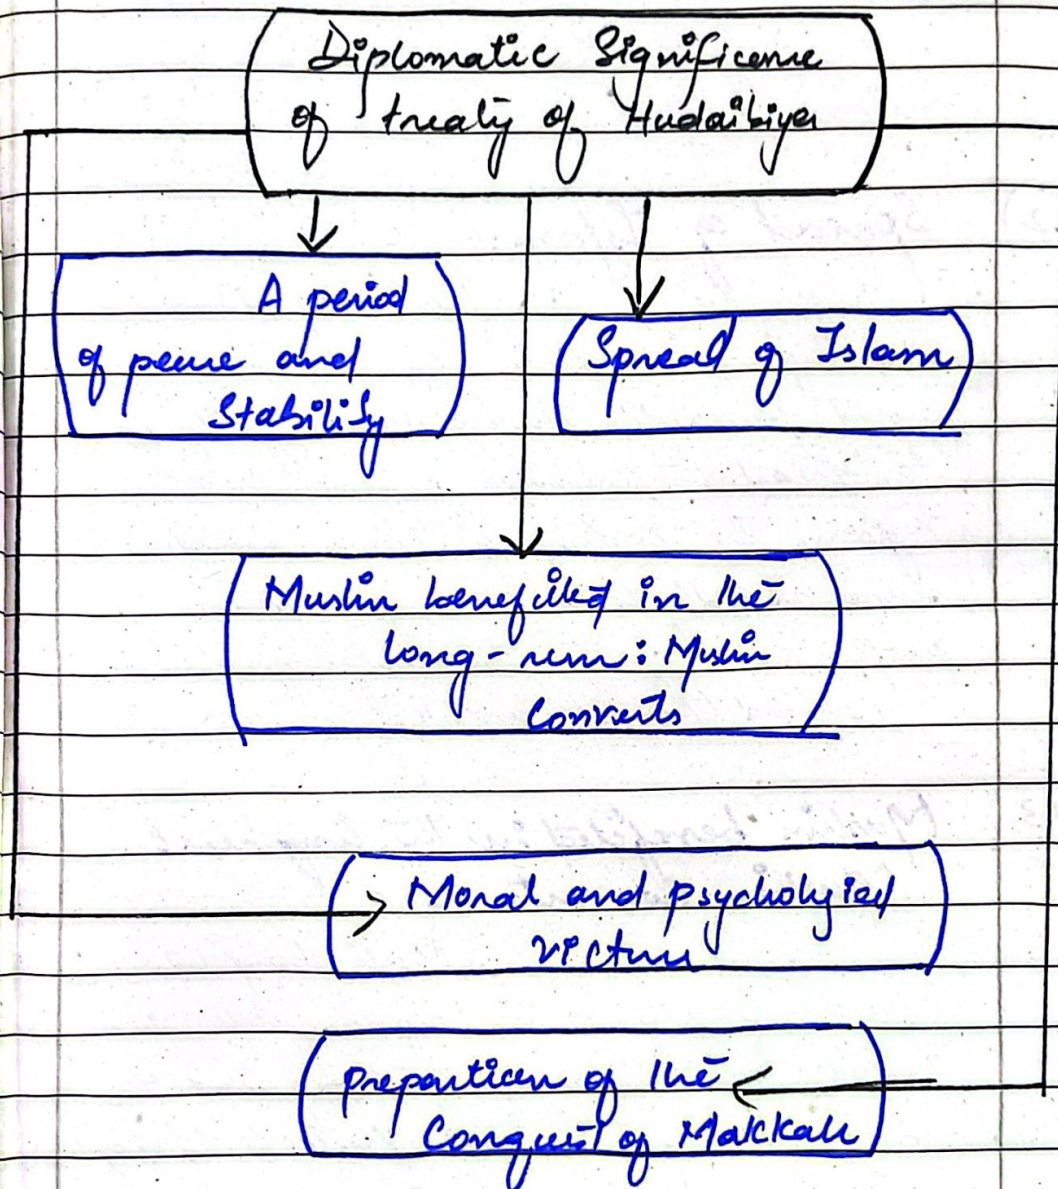 Diplomatic Significance
of treaty of Hudaibiya
A period
of peace and
Stability
Spread of Islam
Muslim benefited in the
long-run: Muslim
Converts
Moral and psychological
victory
Prepartion of the
Conquest of Makkah